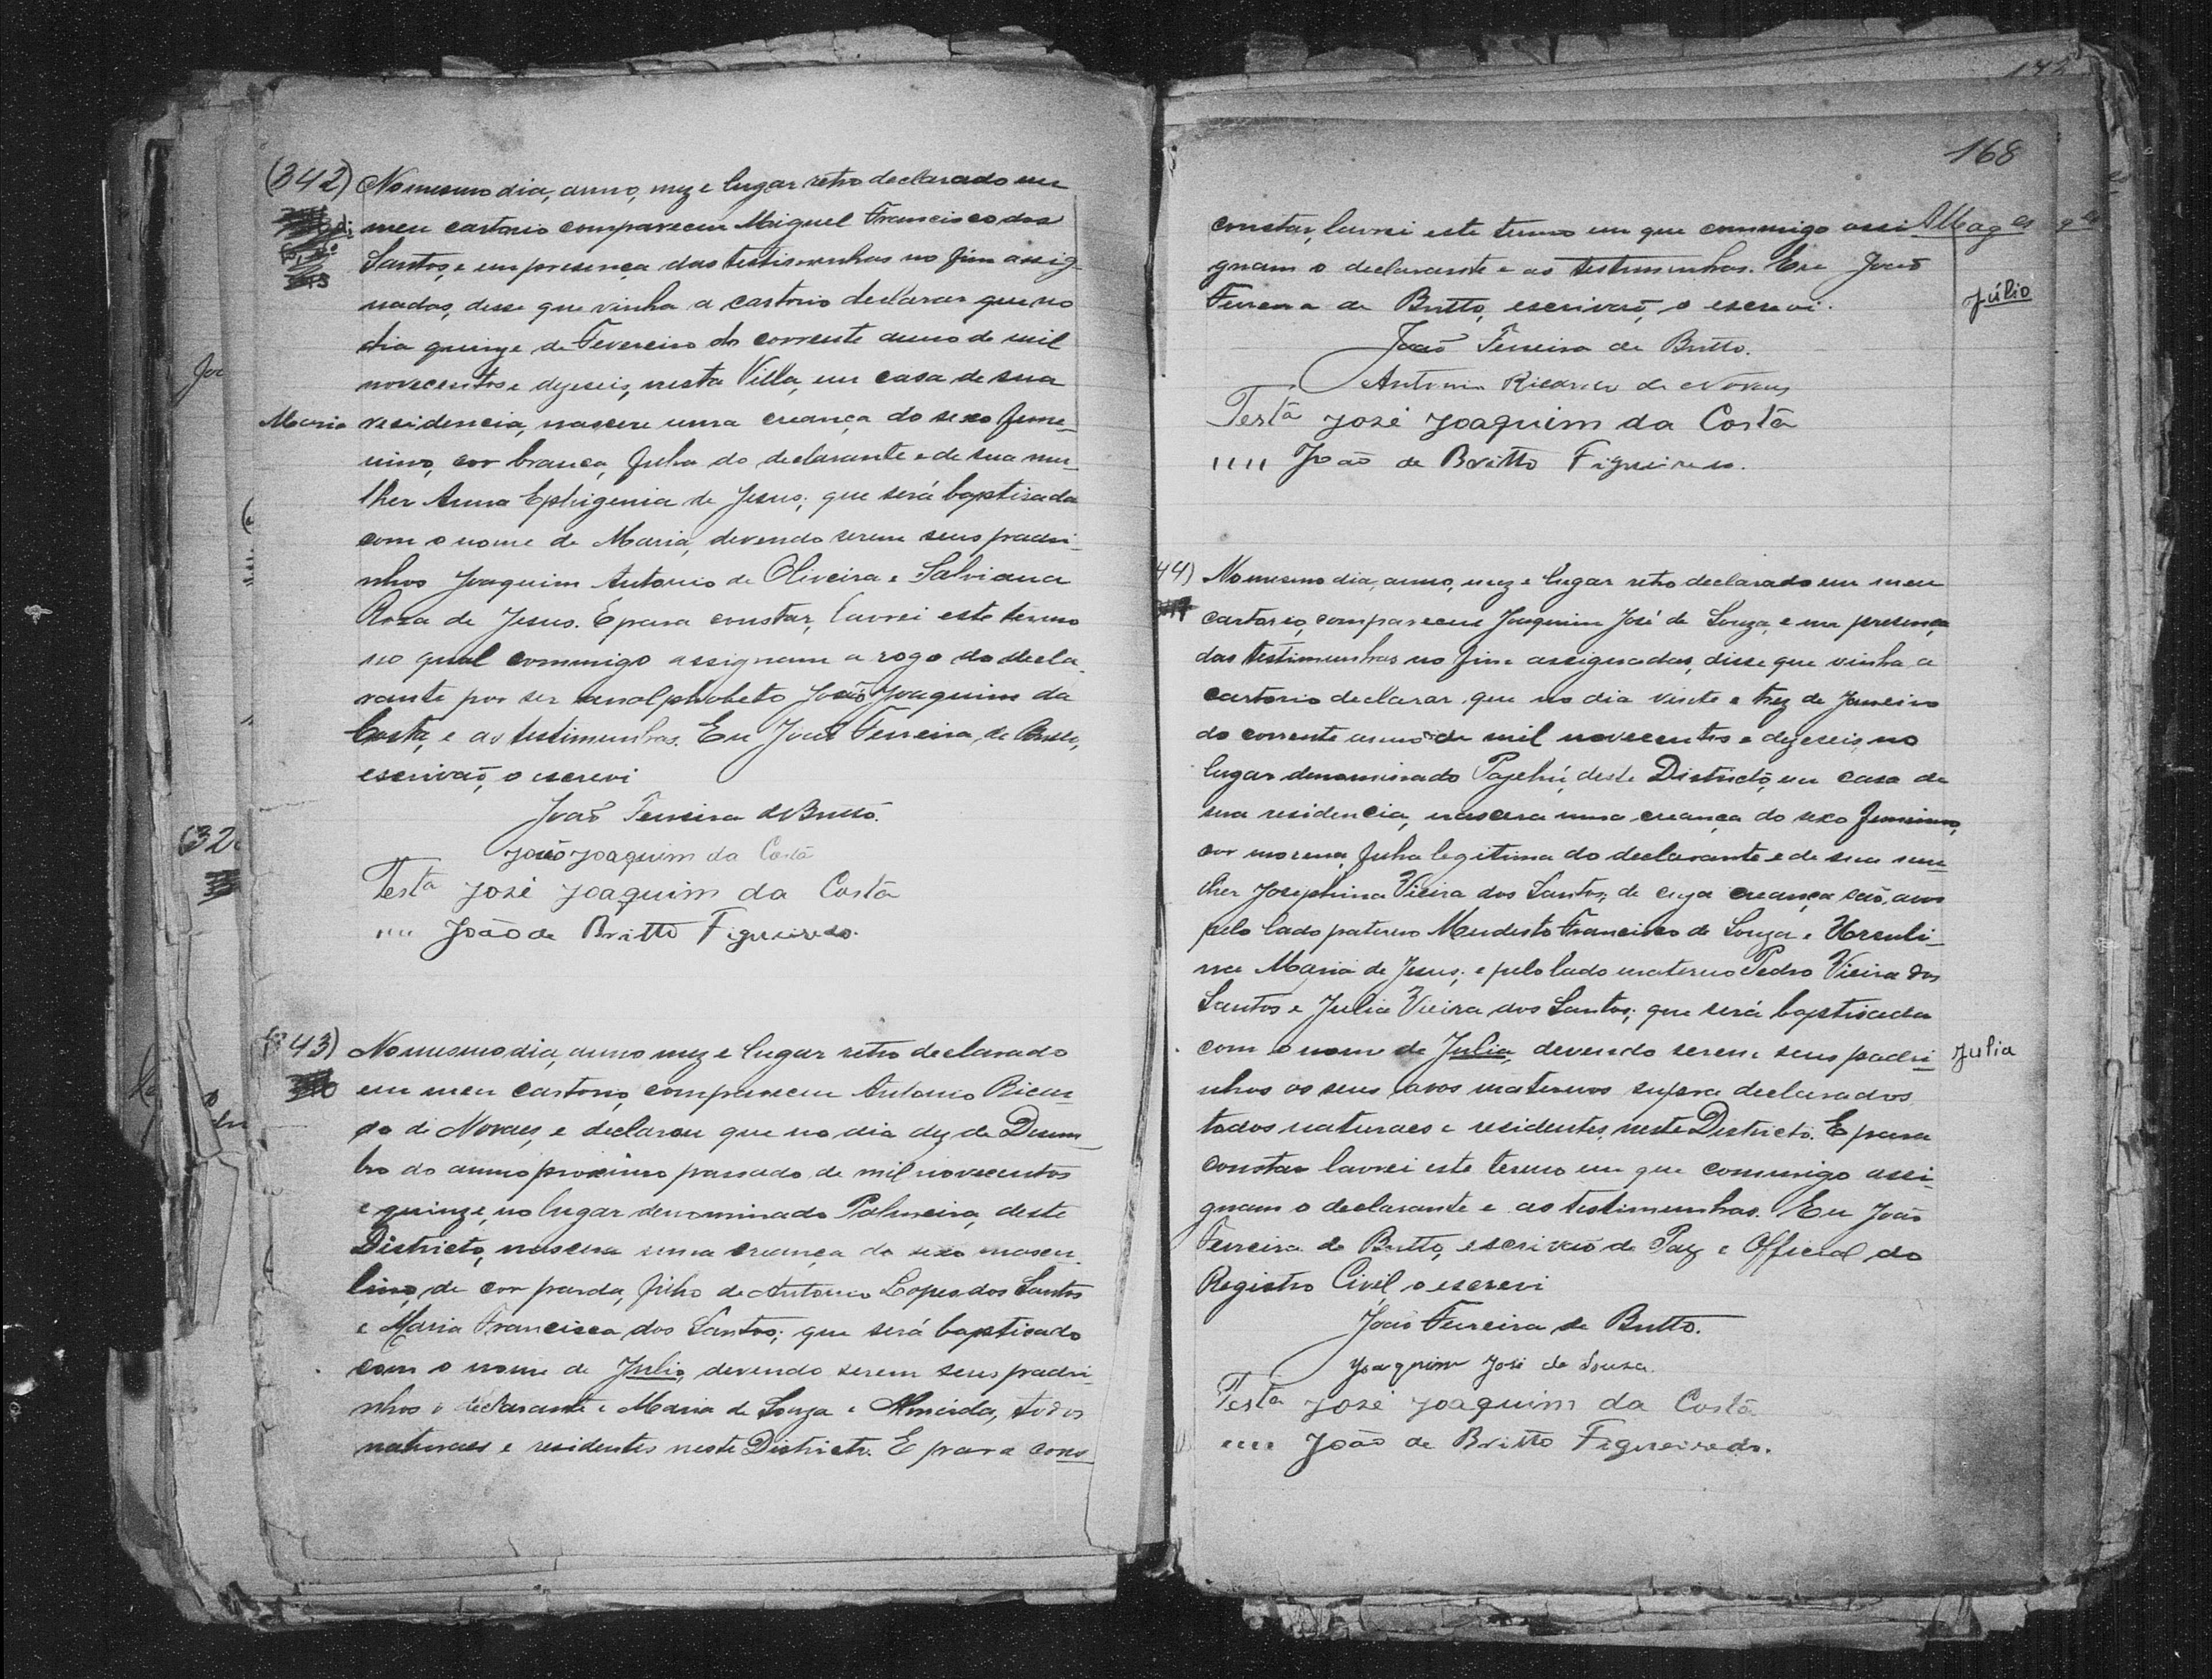 (342) No mesmo dia, anno, mez e lugar retro declarado em
meu cartorio compareceu Miguel Francisco dos
Santos, e em presença das testimunhas no fim assig-
nadas, disse que vinha a cartorio declarar que no
dia quinze de Fevereiro do corrente anno de mil
novecentos e dezeseis, nesta Villa, em casa de sua
Maria residencia, nascera uma creança do sexo femi-
nino, cor branca, filha do declarante e de sua mu-
lher Anna Ephigenia de Jesus; que será baptisada
com o nome de Maria, devendo serem seus padri-
nhos Joaquim Antonio de Oliveira e Salviana
Roza de Jesus. E para constar, lavrei este termo
no qual commigo assignam a rogo do decla-
rante por ser analphabeto João Joaquim da
Costa, e as testimunhas. Eu João Ferreira de Britto,
escrivão, o escrevi
João Ferreira de Britto.
João Joaquim da Costa
Testª José Joaquim da Costa
"" João de Britto Figueiredo.
(343) No mesmo dia, anno mez e lugar retro declarado
em meu cartorio, compareceu Antonio Ricar-
do de Novaes, e declarou que no dia dez de Dezem-
bro do anno proximo passado de mil novecentos
e quinze, no lugar denominado Palmeira, deste
Districto, nascera uma creança do sexo mascu-
lino, de cor parda, filho de Antonio Lopes dos Santos
e Maria Francisca dos Santos; que será baptisado
com o nome de Julio, devendo serem seus padri-
nhos o declarante e Maria de Souza e Almeida, todos
naturaes e residentes neste Districto. E para cons-
168
constar, lavrei este termo em que commigo assi
gnam o declarante e as testimunhas. Eu João
Ferreira de Britto, escrivão, o escrevi.
Júlio
João Ferreira de Britto.
Antonio Ricardo de Novaes
Testª José Joaquim da Costa
"" João de Britto Figueiredo.
44) No mesmo dia, anno, mez e lugar retro declarado em meu
cartorio, compareceu Joaquim José de Souza, e em presença
das testimunhas no fim assignadas, disse que vinha a
cartorio declarar que no dia vinte e trez de Janeiro
do corrente anno de mil novecentos e dezeseis, no
lugar denominado Pajehú, deste Districto, em casa de
sua residencia, nascera uma creança do sexo feminino,
cor morena, filha legitima do declarante e de sua mu-
lher Josephina Vieira dos Santos; de cuja creança são avos
pelo lado paterno Modesto Francisco de Souza e Ursuli-
na Maria de Jesus; e pelo lado materno Pedro Vieira dos
Santos e Julia Vieira dos Santos; que será baptisada
com o nome de Julia, devendo serem seus padri- Julia
nhos os seus avos maternos supra declarados
todos naturaes e residentes neste Districto. E para
constar lavrei este termo em que commigo assi-
gnam o declarante e as testimunhas. Eu João
Ferreira de Britto, escrivão de Paz e Official do
Registro Civil, o escrevi
João Ferreira de Britto.
Joaquim José de Souza
Testª José Joaquim da Costa
"" João de Britto Figueiredo.